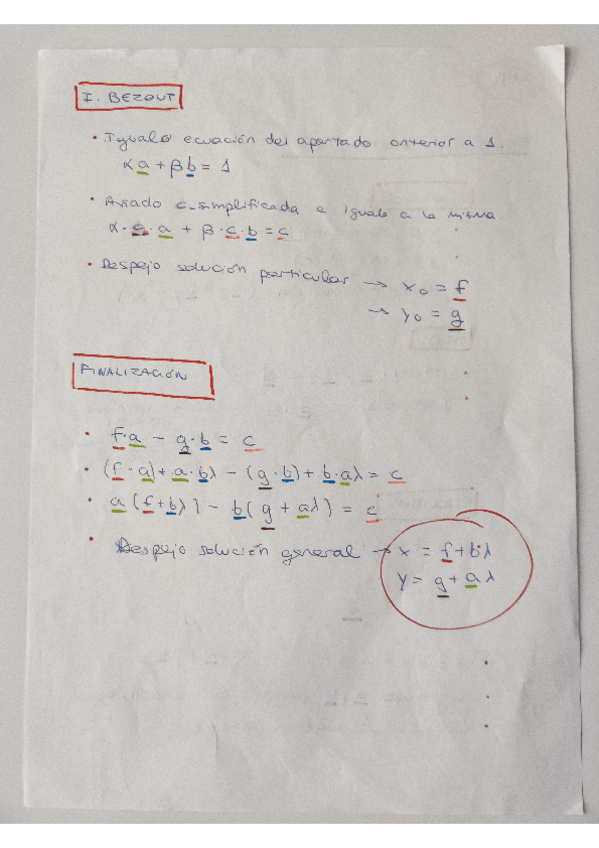 I. BEZOUT
• Igualo ecuación del apartado anterior a 1.
α a + β b = 1
• Añado c_simplificada e igualo a la misma
α · c · a + β · c · b = c
• Despejo solución particular → x₀ = f
→ y₀ = g
FINALIZACIÓN
• f·a − g·b = c
• (f·a) + a·bλ − (g·b) + b·aλ = c
• a(f+bλ) − b(g+aλ) = c
• Despejo solución general → x = f+bλ
y = g+aλ